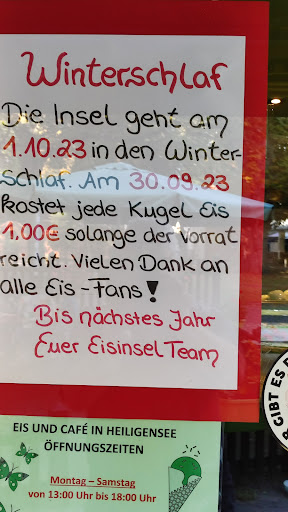 Winterschlaf
Die Insel geht am
1.10.23 in den Winter-
schlaf. Am 30.09.23
kostet jede Kugel Eis
1,00€ solange der Vorrat
reicht. Vielen Dank an
alle Eis-Fans!
Bis nächstes Jahr
Euer Eisinsel Team
EIS UND CAFÉ IN HEILIGENSEE
ÖFFNUNGSZEITEN
Montag – Samstag
von 13:00 Uhr bis 18:00 Uhr
GIBT ES